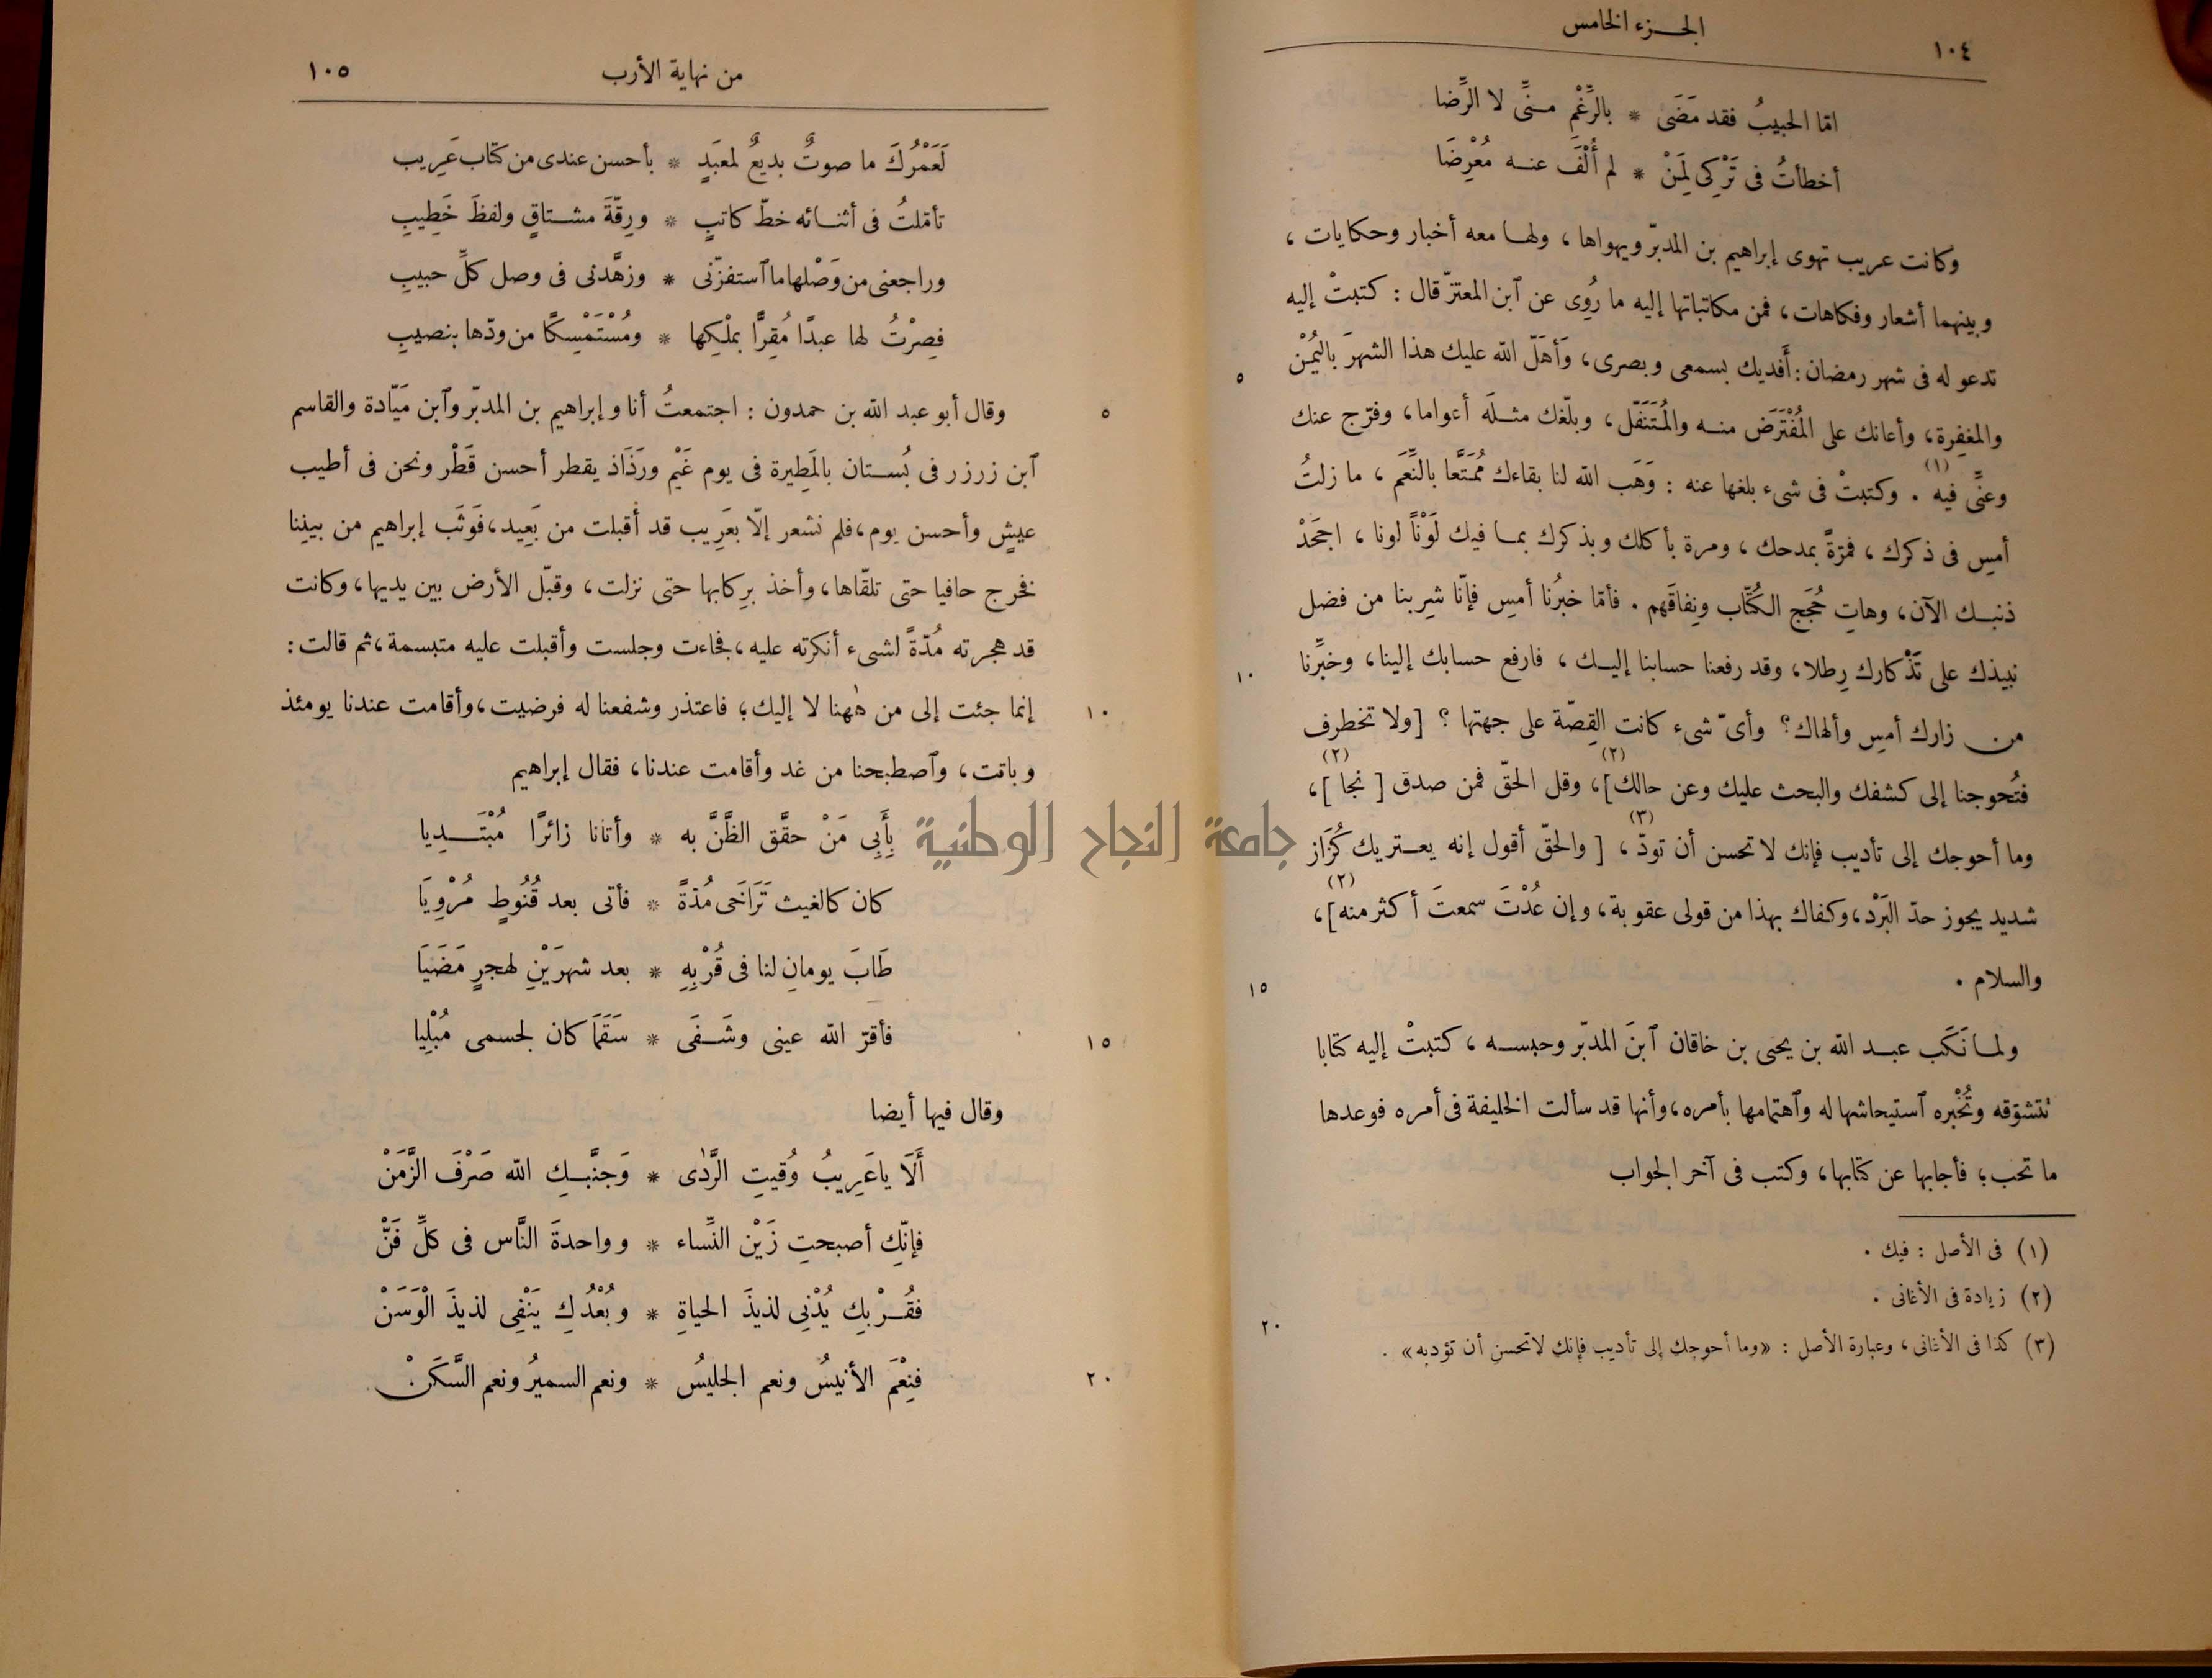 ١٠٤
الجزء الخامس
امّا الحبيبُ فقد مَضَى * بالرَّغْمِ منِّى لا الرِّضا
أخطأتُ فى تَرْكِى لِمَنْ * لم أُلْفَ عنه مُعْرِضَا
وكانت عريب تهوى إبراهيم بن المدبّر ويهواها، ولها معه أخبار وحكايات،
وبينهما أشعار وفكاهات، فمن مكاتباتها إليه ما رُوِى عن ٱبن المعتزّ قال: كتبتْ إليه
تدعو له فى شهر رمضان: أَفديك بسمعى وبصرى، وَأَهَلّ الله عليك هذا الشهرَ باليُمْن ٥
والمغفِرة، وأعانك على المُفْتَرَض منه والمُتَنَفَّل، وبلّغك مثلَه أعواما، وفرّج عنك
وعنِّى فيه (١). وكتبتْ فى شىء بلغها عنه: وَهَب الله لنا بقاءك مُمَتَّعا بالنِّعَم، ما زلتُ
أمسِ فى ذكرك، فمرّةً بمدحك، ومرة بأكلك وبذكرك بما فيك لَوْنًا لونا، اجحَدْ
ذنبك الآن، وهاتِ حُجَج الكُتّاب ونِفاقَهم. فأمّا خبرُنا أمسِ فإنّا شرِبنا من فضل
نبيذك على تَذْكارك رِطلا، وقد رفعنا حسابنا إليك، فارفع حسابك إلينا، وخبِّرنا ١٠
من زارك أمسِ وألهاك؟ وأىّ شىء كانت القِصّة على جهتها؟ [ولا تخطرف
فتُحوجنا إلى كشفك والبحث عليك وعن حالك] (٢)، وقل الحقّ فمن صدق [نجا] (٢)،
وما أحوجك إلى تأديب فإنك لا تحسن أن تودّ (٣)، [والحقّ أقول إنه يعتريك كُزَاز
شديد يجوز حدّ البَرْد، وكفاك بهذا من قولى عقوبة، وإن عُدْتَ سمعتَ أكثر منه] (٢)،
والسلام. ١٥
ولما نَكَب عبد الله بن يحيى بن خاقان ٱبنَ المدبّر وحبسه، كتبتْ إليه كتابا
تتشوّقه وتُخْبره ٱستيحاشها له وٱهتمامها بأمره، وأنها قد سألت الخليفة فى أمره فوعدها
ما تحب؛ فأجابها عن كتابها، وكتب فى آخر الجواب
(١) فى الأصل: فيك.
(٢) زيادة فى الأغانى. ٢٠
(٣) كذا فى الأغانى، وعبارة الأصل: «وما أحوجك إلى تأديب فإنك لا تحسن أن تؤدبه».
من نهاية الأرب
١٠٥
لَعَمْرُكَ ما صوتٌ بديعٌ لمعبَدٍ * بأحسن عندى من كتاب عَرِيب
تأمّلتُ فى أثنائه خطّ كاتبٍ * ورِقّةَ مشتاقٍ ولفظَ خَطِيبِ
وراجعنى من وَصْلها ما ٱستفزّنى * وزهَّدنى فى وصل كلِّ حبيبِ
فصِرْتُ لها عبدًا مُقِرًّا بملْكِها * ومُسْتَمْسِكًا من ودّها بنصيبِ
وقال أبو عبد الله بن حمدون: اجتمعتُ أنا وإبراهيم بن المدبّر وٱبن مَيّادة والقاسم ٥
ٱبن زرزر فى بُستان بالمَطِيرة فى يوم غَيْم ورَذَاذ يقطر أحسن قَطْر ونحن فى أطيب
عيشٍ وأحسن يوم، فلم نشعر إلّا بعَرِيب قد أقبلت من بَعِيد، فَوَثَب إبراهيم من بيننا
فخرج حافيا حتى تلقّاها، وأخذ برِكابها حتى نزلت، وقبّل الأرض بين يديها، وكانت
قد هجرته مُدّةً لشىء أنكرته عليه، فجاءت وجلست وأقبلت عليه متبسمة، ثم قالت:
إنما جئت إلى من هٰهنا لا إليك؛ فاعتذر وشفعنا له فرضيت، وأقامت عندنا يومئذ ١٠
وباتت، وٱصطبحنا من غد وأقامت عندنا، فقال إبراهيم
بِأَبِى مَنْ حقَّق الظَّنَّ به * وأتانا زائرًا مُبْتَدِيا
كان كالغيث تَرَاخَى مُدّةً * فأتى بعد قُنُوطٍ مُرْوِيَا
طَابَ يومانِ لنا فى قُرْبِهِ * بعد شهرَيْنِ لهجرٍ مَضَيَا
فأقرّ الله عينى وشَفَى * سَقَمًا كان لجسمى مُبْلِيا ١٥
وقال فيها أيضا
أَلَا يا عَرِيبُ وُقيتِ الرَّدَى * وَجنَّبكِ الله صَرْفَ الزَّمَنْ
فإنّكِ أصبحتِ زَيْن النِّساء * وواحدةَ النَّاس فى كلِّ فَنّْ
فقُرْبكِ يُدْنِى لذيذَ الحياةِ * وبُعْدُكِ يَنْفِى لذيذَ الْوَسَنْ
فنِعْمَ الأنيسُ ونعم الجليسُ * ونعم السميرُ ونعم السَّكَنْ ٢٠
جامعة النجاح الوطنية